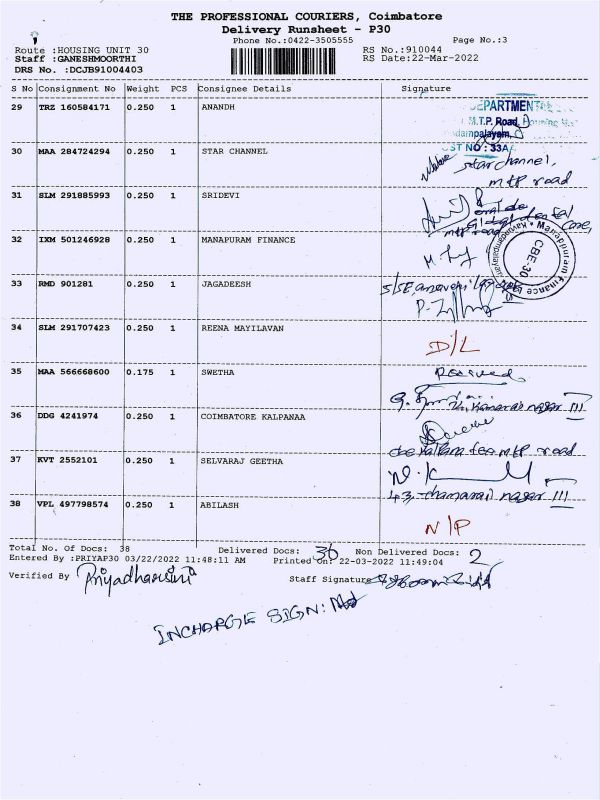 THE PROFESSIONAL COURIERS, Coimbatore
Delivery Runsheet - P30
Phone No.:0422-3505555 Page No.:3
Route :HOUSING UNIT 30 RS No.:910044
Staff :GANESHMOORTHI RS Date:22-Mar-2022
DRS No. :DCJB91004403
S No Consignment No Weight PCS Consignee Details Signature
29 TRZ 160584171 0.250 1 ANANDH
M.T.P. Road,
ST NO : 33A
30 MAA 284724294 0.250 1 STAR CHANNEL
star channel,
mtp road
31 SLM 291885993 0.250 1 SRIDEVI
mtp road
32 IXM 501246928 0.250 1 MANAPURAM FINANCE
CBE-30
33 RMD 901281 0.250 1 JAGADEESH
34 SLM 291707423 0.250 1 REENA MAYILAVAN
D/L
35 MAA 566668600 0.175 1 SWETHA
Received
nagar III
36 DDG 4241974 0.250 1 COIMBATORE KALPANAA
mtp road
37 KVT 2552101 0.250 1 SELVARAJ GEETHA
nagar III
38 VPL 497798574 0.250 1 ABILASH
N/P
Total No. Of Docs: 38 Delivered Docs: 36 Non Delivered Docs: 2
Entered By :PRIYAP30 03/22/2022 11:48:11 AM Printed On: 22-03-2022 11:49:04
Verified By Priyadharsini Staff Signature
INCHARGE SIGN: